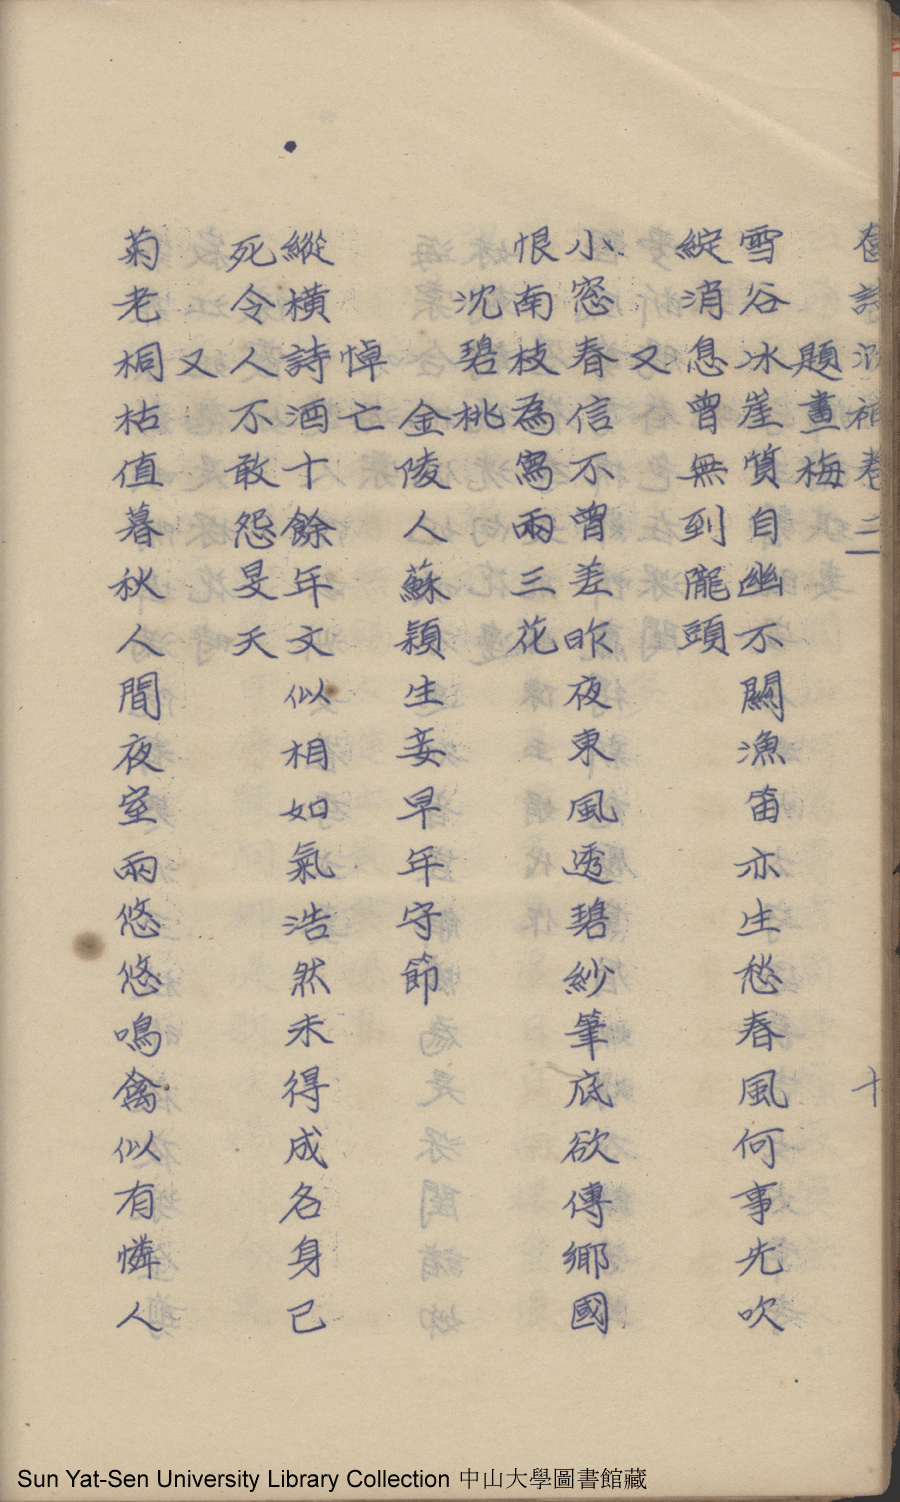 舊詩淵補卷三 十
題畫梅
雪谷冰崖質自幽不關漁笛亦生愁春風何事先吹
綻消息曾無到隴頭
又
小窓春信不曾差昨夜東風透碧紗筆底欲傳鄉國
恨南枝為寫兩三花
沈碧桃
金陵人蘇穎生妾早年守節
悼亡
縱橫詩酒十餘年文似相如氣浩然未得成名身已
死令人不敢怨旻天
又
菊老桐枯值暮秋人間夜室兩悠悠鳴禽似有憐人
Sun Yat-Sen University Library Collection 中山大學圖書館藏